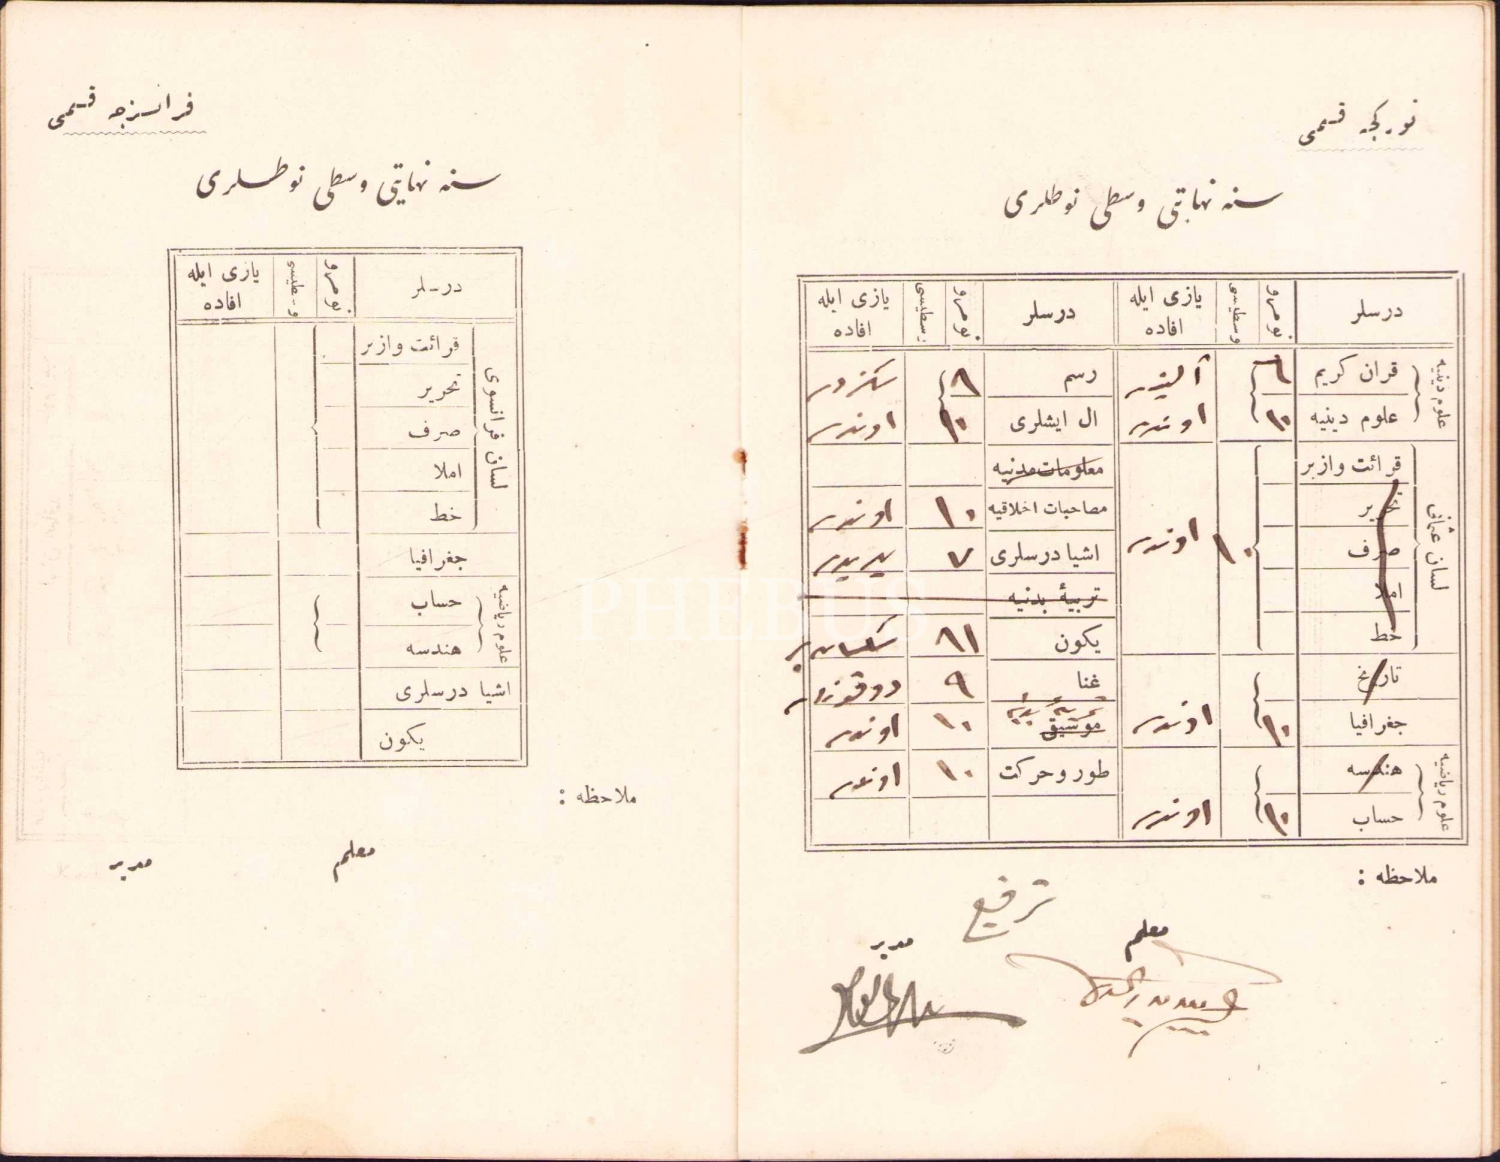 تورکجه قسمی
سنه نهایتی وسطی نوطلری
درسلر نومرو وسطیسی یازی ایله افاده درسلر نومرو وسطیسی یازی ایله افاده
علوم دینیه
قران کریم ٦ آلتیدر رسم ٨ سکزدر
علوم دینیه ١٠ اوندر ال ایشلری ١٠ اوندر
لسان عثمانی
قرائت وازبر ١٠ اوندر معلومات مدنیه
تحریر مصاحبات اخلاقیه ١٠ اوندر
صرف اشیا درسلری ٧ یدیدر
املا تربیهٔ بدنیه
خط یکون ٨١ سکسان بر
تاریخ غنا ٩ دوقوزدر
جغرافیا ١٠ اوندر موسیقی ١٠ اوندر
علوم ریاضیه
هندسه طور وحرکت ١٠ اوندر
حساب ١٠ اوندر
ملاحظه :
ترفیع
معلم مدیر
فرانسزجه قسمی
سنه نهایتی وسطی نوطلری
درسلر نومرو وسطیسی یازی ایله افاده
لسان فرانسوی
قرائت وازبر
تحریر
صرف
املا
خط
جغرافیا
علوم ریاضیه
حساب
هندسه
اشیا درسلری
یکون
ملاحظه :
معلم مدیر
PHEBUS